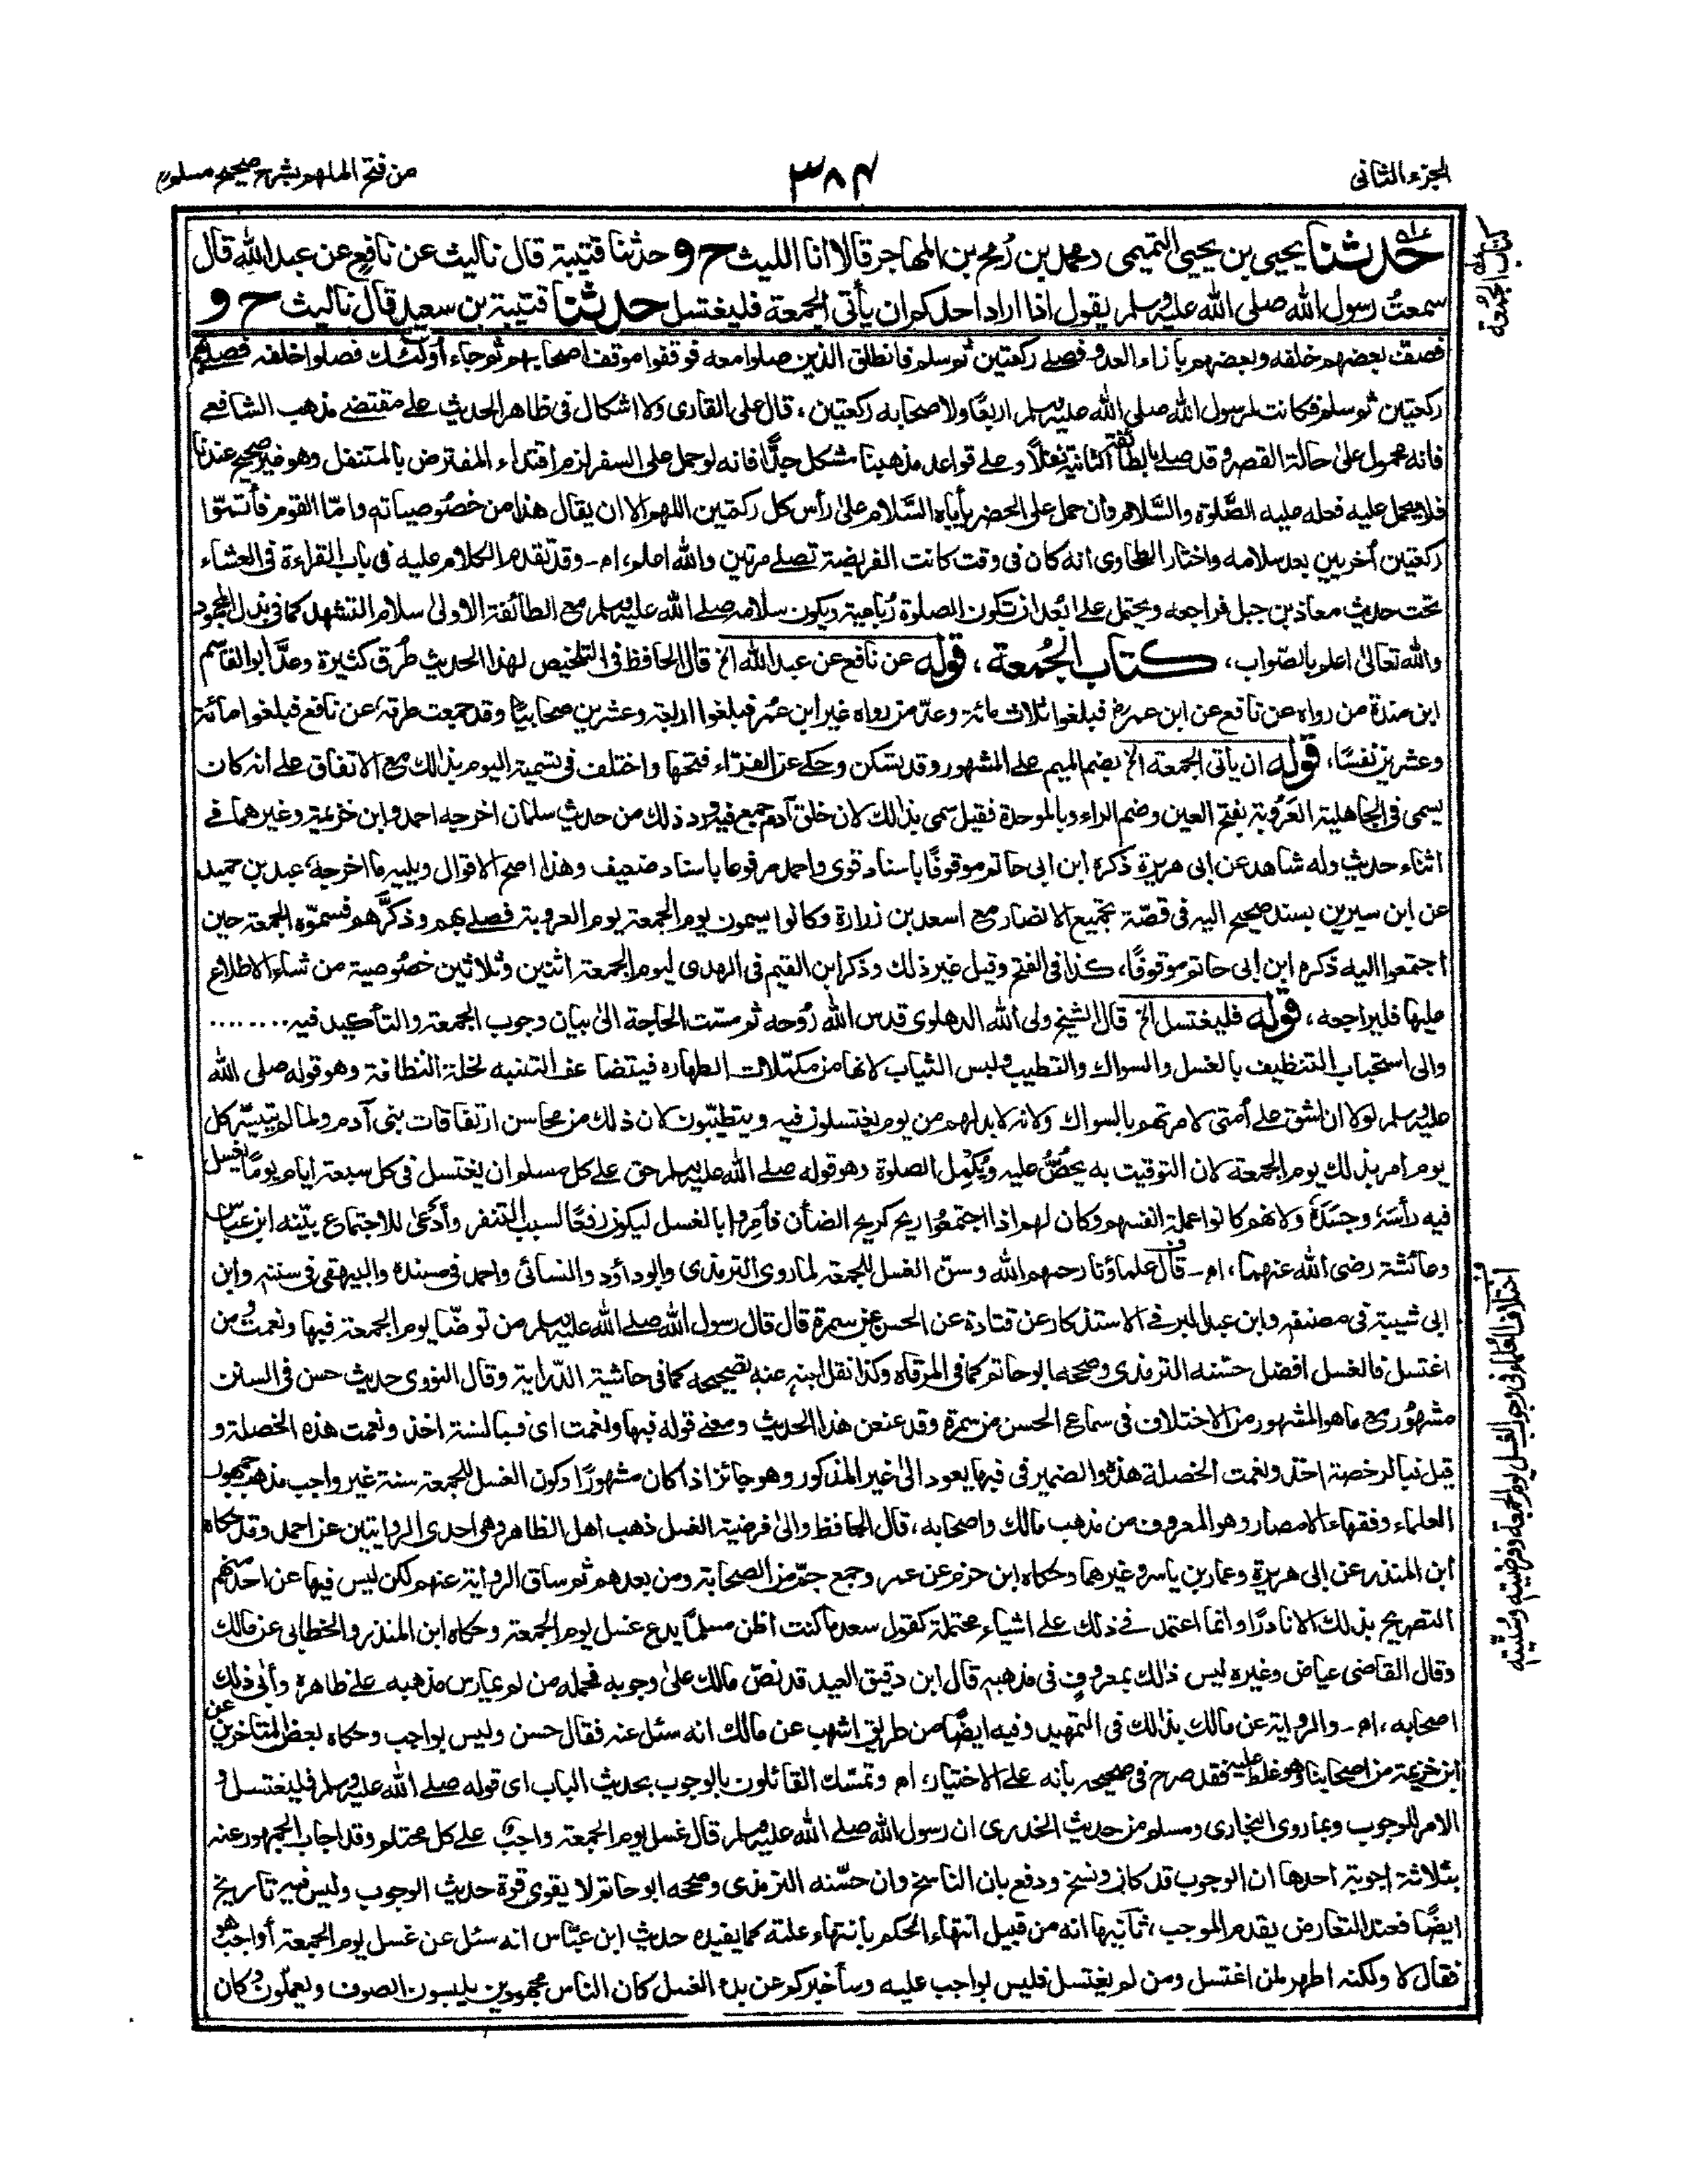 الجزء الثانى
٣٨٤
من فتح الملهم بشرح صحيح مسلم
كتاب الجمعة
حدثنا يحيى بن يحيى التميمى ومحمد بن رُمح بن المهاجر قالا انا الليث ح و حدثنا قتيبة قال نا ليث عن نافع عن عبد الله قال
سمعتُ رسول الله صلى الله عليه وسلم يقول اذا اراد احدكم ان يأتى الجمعة فليغتسل حدثنا قتيبة بن سعيد قال نا ليث ح و
فصفّ بعضهم خلفه وبعضهم بازاء العدو فصلى ركعتين ثم سلم فانطلق الذين صلوا معه فوقفوا موقف اصحابهم ثم جاء أولئك فصلوا خلفه فصلى بهم
ركعتين ثم سلم فكانت لرسول الله صلى الله عليه وسلم اربعًا ولاصحابه ركعتين، قال على القارى ولا اشكال فى ظاهر الحديث على مقتضى مذهب الشافعى
فانه محمول على حالة القصر وقد صلى بالطائفة الثانية نفلاً وعلى قواعد مذهبنا مشكل جدًّا فانه لو حمل على السفر لزم اقتداء المفترض بالمتنفل وهو غير صحيح عندنا
فلا يحمل عليه فعله عليه الصَّلوٰة والسَّلام وان حمل على الحضر يأباه السَّلام على رأس كل ركعتين اللهم الا ان يقال هذا من خصُوصياته واما القوم فأتمّوا
ركعتين أخريين بعد سلامه واختار الطحاوى انه كان فى وقت كانت الفريضة تصلى مرتين والله اعلم، اھ ـ وقد تقدم الكلام عليه فى باب القراءة فى العشاء
تحت حديث معاذ بن جبل فراجعه ويحتمل على بُعد ان تكون الصلوة رُباعية ويكون سلامه صلى الله عليه وسلم مع الطائفة الاولىٰ سلام التشهد كما فى بذل المجهود
والله تعالىٰ اعلم بالصّواب، كتاب الجُمعة، قوله عن نافع عن عبد الله الخ قال الحافظ فى التلخيص لهذا الحديث طُرق كثيرة وعدَّ ابو القاسم
ابن مندة من رواه عن نافع عن ابن عمر رض فبلغوا ثلاث مائة وعدّ من رواه غير ابن عمر فبلغوا اربعة وعشرين صحابيًا وقد جمعت طرقه عن نافع فبلغوا مائة
وعشرين نفسًا، قوله ان يأتى الجمعة الخ بضم الميم على المشهور وقد يسكن وحكى عن الفراء فتحها واختلف فى تسمية اليوم بذلك مع الاتفاق على انه كان
يسمى فى الجاهلية العَرُوبة بفتح العين وضم الراء وبالموحدة فقيل سمى بذلك لان خلق آدم جمع فيه ورد ذلك من حديث سلمان اخرجه احمد وابن خزيمة وغيرهما فى
اثناء حديث وله شاهد عن ابى هريرة ذكره ابن ابى حاتم موقوفًا باسناد قوى واحمد مرفوعا باسناد ضعيف وهذا اصح الاقوال ويليه ما اخرجه عبد بن حميد
عن ابن سيرين بسند صحيح اليه فى قصّة تجميع الانصار مع اسعد بن زرارة وكانوا يسمون يوم الجمعة يوم العروبة فصلى بهم وذكَّرهم فسمّوه الجمعة حين
اجتمعوا اليه ذكره ابن ابى حاتم موقوفًا، كذا فى الفتح وقيل غير ذلك وذكر ابن القيم فى الهدى ليوم الجمعة اثنين وثلاثين خصُوصية من شاء الاطلاع
عليها فليراجعه، قوله فليغتسل الخ قال الشيخ ولى الله الدهلوى قدس الله رُوحه ثم مسّت الحاجة الىٰ بيان وجوب الجمعة والتأكيد فيه ........
والى استحباب التنظيف بالغسل والسواك والتطيب ولبس الثياب لانها من مكملات الطهارة فيتضاعف التنبه لخلة النظافة وهو قوله صلى الله
عليه وسلم لولا ان اشق على أمتى لامرتهم بالسواك ولانه لابد لهم من يوم يغتسلون فيه ويتطيّبون لان ذلك من محاسن ارتفاقات بنى آدم ولما لم يتيسّر كل
يوم امر بذلك يوم الجمعة لان التوقيت به يحُضُّ عليه ويُكمِّل الصلوة وهو قوله صلى الله عليه وسلم حق على كل مسلم ان يغتسل فى كل سبعة ايام يومًا يغسل
فيه رأسَهٗ وجسَدَهٗ ولانهم كانوا عملة انفسهم وكان لهم اذا اجتمعُوا ريح كريح الضأن فأمِروا بالغسل ليكون رفعًا لسبب التنفر وأدعىٰ للاجتماع بيّنه ابن عباس
وعائشة رضى الله عنهما، اھ ـ قال علماؤنا رحمهم الله وسنّ الغسل للجمعة لما روى الترمذى وابو داؤد والنسائى واحمد فى مسنده والبيهقى فى سننه وابن
ابى شيبة فى مصنفه وابن عبد البر فى الاستذكار عن قتادة عن الحسن عن سمرة قال قال رسول الله صلى الله عليه وسلم من توضّا يوم الجمعة فبها ونعمتْ ومن
اغتسل فالغسل افضل حسّنه الترمذى وصححه ابو حاتم كما فى المرقاة وكذا نقل ابنه عنه تصحيحه كما فى حاشية الدّراية وقال النووى حديث حسن فى السنن
مشهُور مع ما هو المشهور من الاختلاف فى سماع الحسن من سمرة وقد عنعن هذا الحديث ومعنى قوله فبها ونعمت اى فبالسنة اخذ ونعمت هذه الخصلة و
قيل فبالرخصة اخذ ونعمت الخصلة هذه والضمير فى فبها يعود الىٰ غير المذكور وهو جائز اذا كان مشهورًا وكون الغسل للجمعة سنة غير واجب مذهب جمهور
العلماء وفقهاء الامصار وهو المعروف من مذهب مالك واصحابه، قال الحافظ والىٰ فرضية الغسل ذهب اهل الظاهر وهى احدى الروايتين عن احمد وقد حكاه
ابن المنذر عن ابى هريرة وعمار بن ياسر وغيرهما وحكاه ابن حزم عن عمر وجمع جمّ من الصحابة ومن بعدهم ثم ساق الرواية عنهم لكن ليس فيها عن احد منهم
التصريح بذلك الا نادرًا وانما اعتمد فى ذلك على اشياء محتملة كقول سعد ما كنت اظن مسلمًا يدع غسل يوم الجمعة وحكاه ابن المنذر والخطابى عن مالك
وقال القاضى عياض وغيره ليس ذلك بمعروفٍ فى مذهبه قال ابن دقيق العيد قد نصّ مالك علىٰ وجوبه فحمله من لم يمارس مذهبه على ظاهره وأبىٰ ذلك
اصحابه، اھ ـ والرواية عن مالك بذلك فى التمهيد وفيه ايضًا من طريق اشهب عن مالك انه سئل عنه فقال حسن وليس بواجب وحكاه بعض المتأخرين عن
ابن خزيمة من اصحابنا وهو غلط عليه فقد صرح فى صحيحه بأنه على الاختيار، اھ وتمسّك القائلون بالوجوب بحديث الباب اى قوله صلى الله عليه وسلم فليغتسل و
الامر للوجوب وبما روى البخارى ومسلم من حديث الخدرى ان رسول الله صلى الله عليه وسلم قال غسل يوم الجمعة واجبٌ على كل محتلم وقد اجاب الجمهور عنه
بثلاثة اجوبة احدها ان الوجوب قد كان ونسخ ودفع بان الناسخ وان حسّنه الترمذى وصححه ابو حاتم لا يقوى قوة حديث الوجوب وليس فيه تاريخ
ايضًا فعند التعارض يقدم الموجب، ثانيها انه من قبيل انتهاء الحكم بانتهاء علته كما يفيده حديث ابن عبّاس انه سئل عن غسل يوم الجمعة أواجب هو
فقال لا ولكنه اطهر لمن اغتسل ومن لم يغتسل فليس بواجب عليه وسأخبركم عن بدء الغسل كان الناس مجهودين يلبسون الصوف ويعملون وكان
اختلاف العلماء فى وجوب الغسل يوم الجمعة وفرضيته وسنّيّته